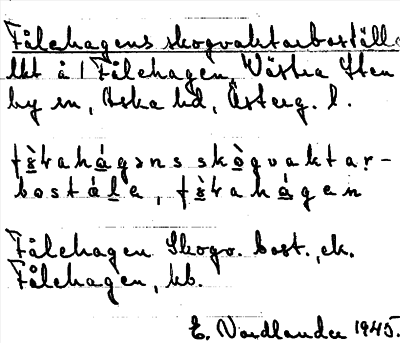 Fålehagens skogvaktarboställe
lht å 1 Fålehagen, Västra Sten
by sn, Aska hd, Österg. l.
fålahágəns skògvaktar-
bostálə, fålahágən
Fålehagen Skogv. bost., ek.
Fålehagen, kb.
E. Nordlander 1945.